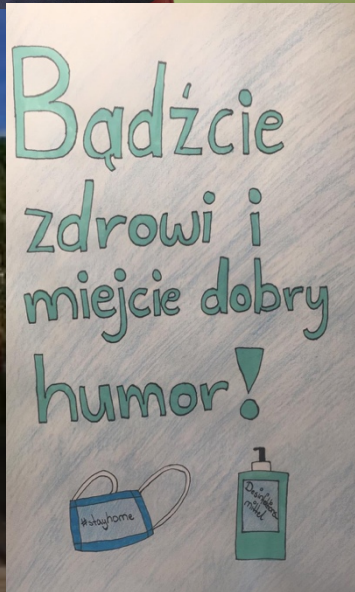 Bądźcie
zdrowi i
miejcie dobry
humor!
#stayhome
Desinfektions
mittel